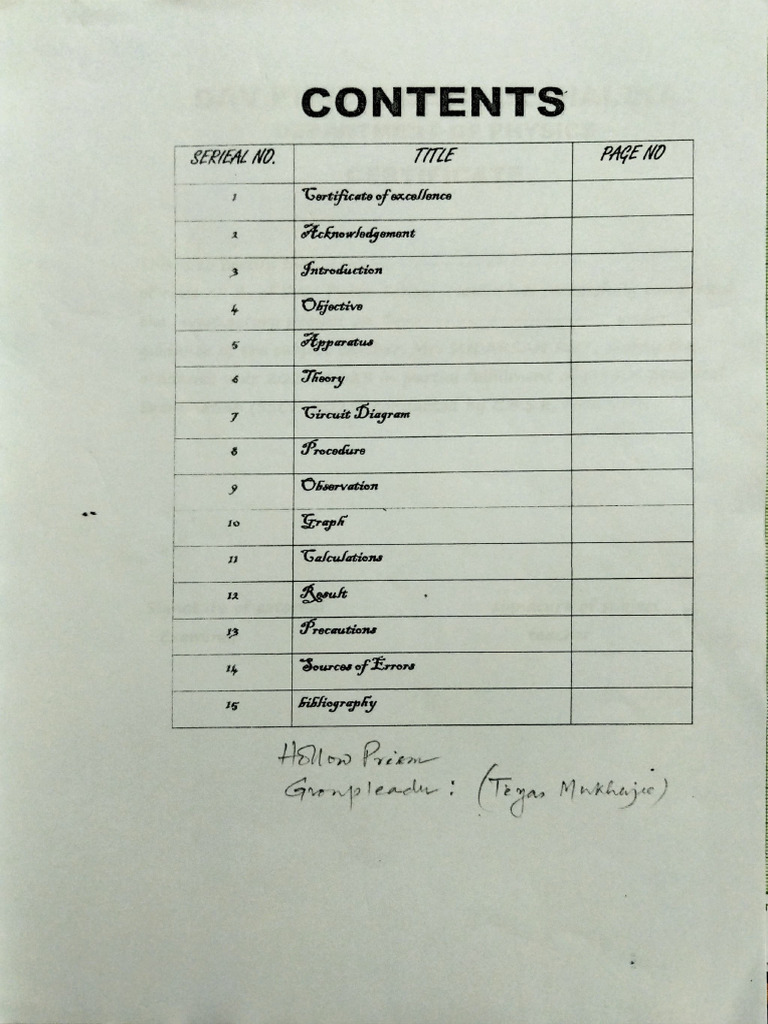 CONTENTS
SERIEAL NO. TITLE PAGE NO
1 Certificate of excellence
2 Acknowledgement
3 Introduction
4 Objective
5 Apparatus
6 Theory
7 Circuit Diagram
8 Procedure
9 Observation
10 Graph
11 Calculations
12 Result
13 Precautions
14 Sources of Errors
15 bibliography
Hollow Prism
Groupleader : (Tejas Mukherjee)